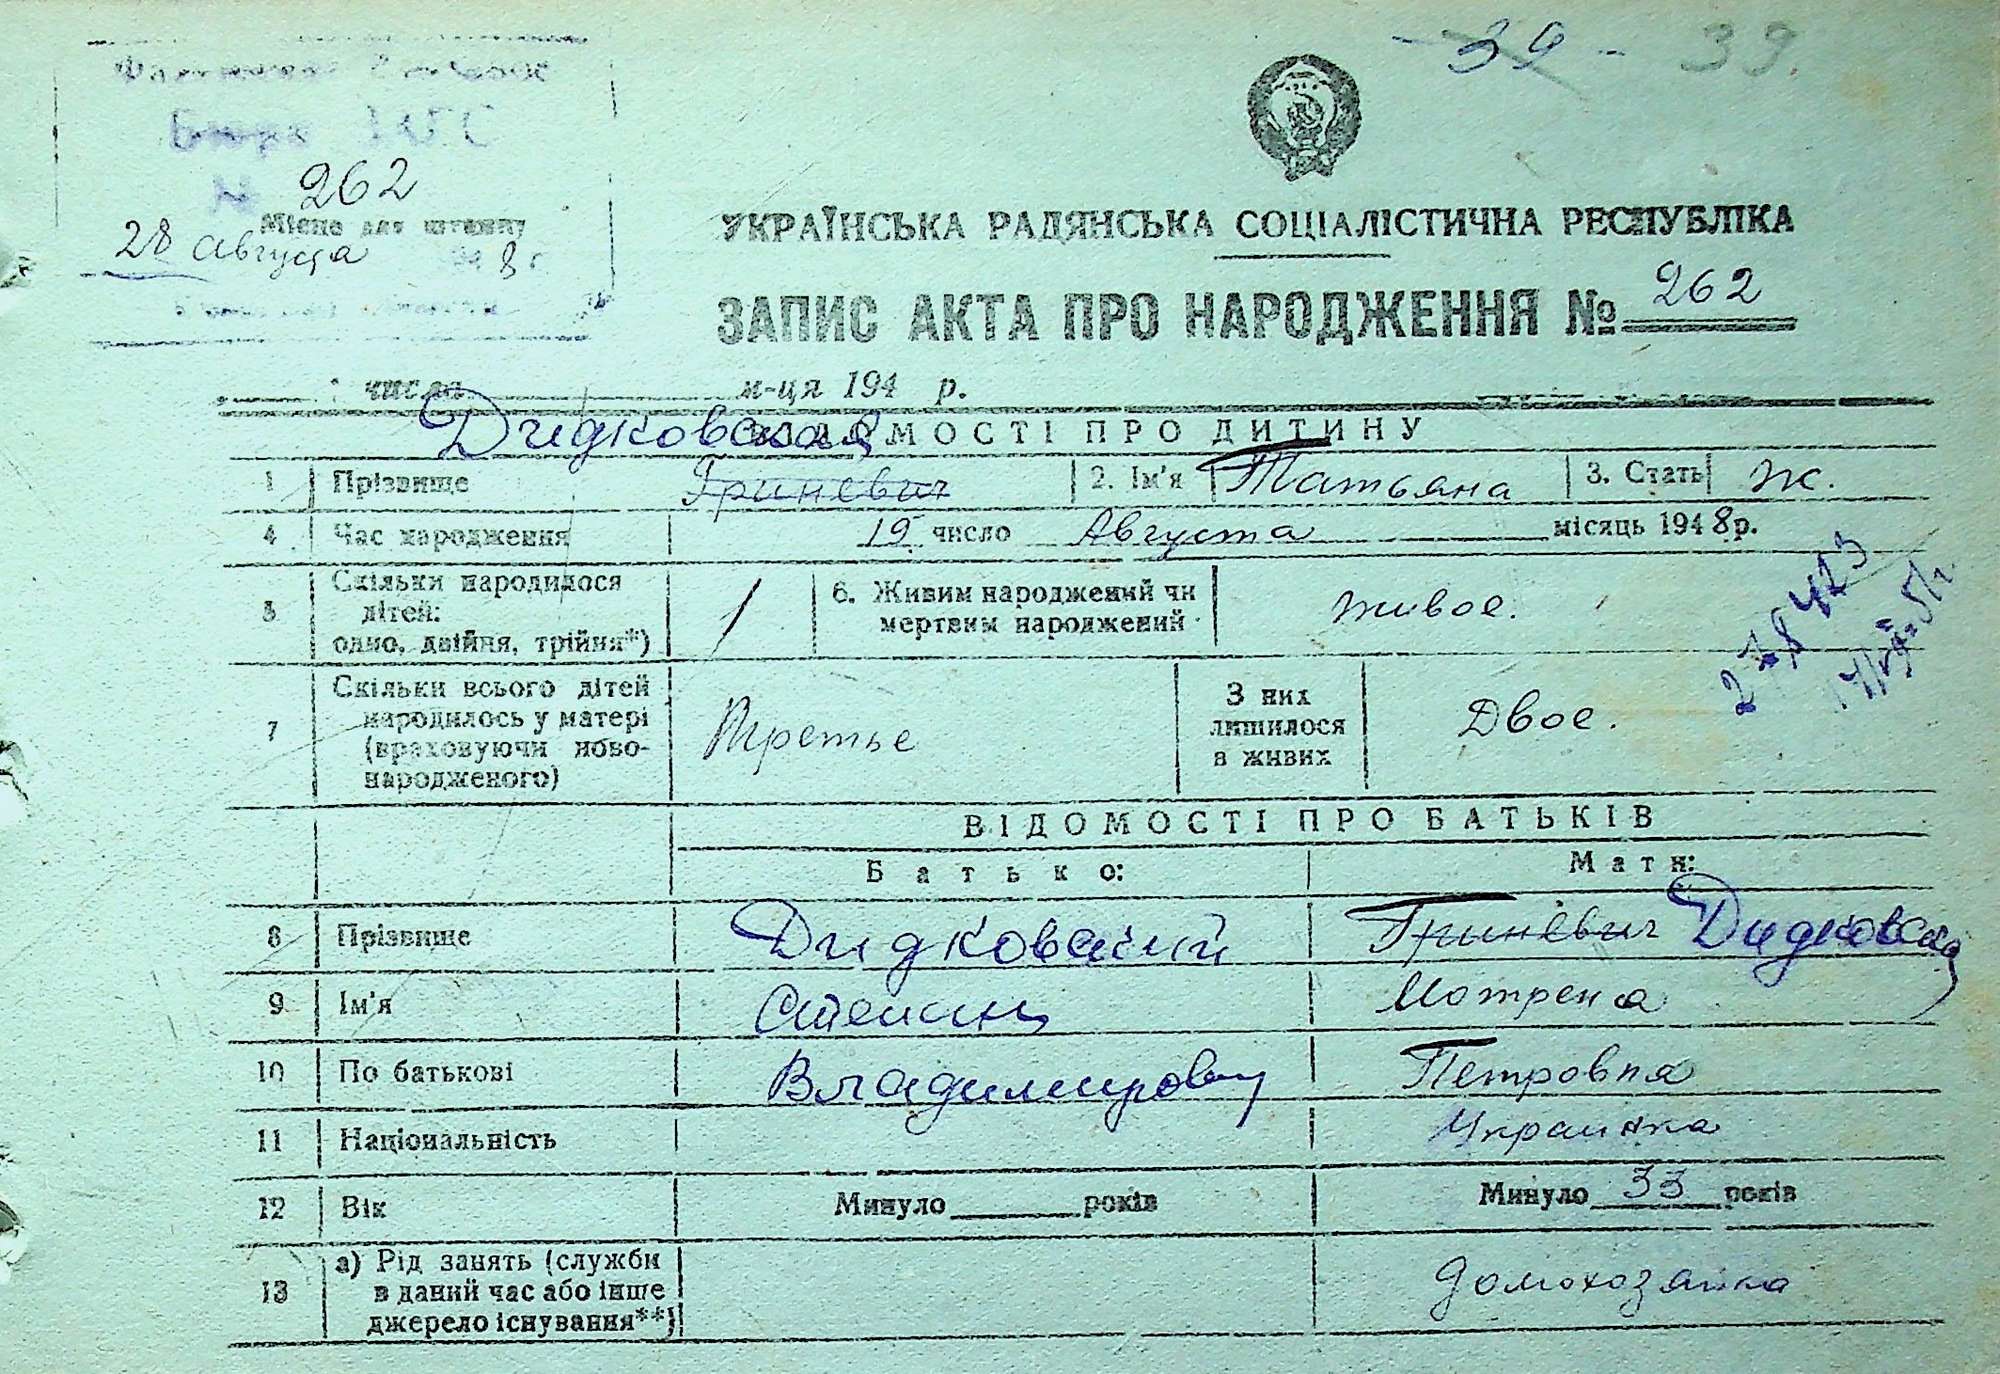 39 39.
Бюро ЗАГС
№ 262
Місце для штампу
28 Августа 8 г
УКРАЇНСЬКА РАДЯНСЬКА СОЦІАЛІСТИЧНА РЕСПУБЛІКА
ЗАПИС АКТА ПРО НАРОДЖЕННЯ № 262
числа м-ця 194 р.
Дидковская
ВІДОМОСТІ ПРО ДИТИНУ
1 Прізвище Гриневич 2. Ім'я Татьяна 3. Стать Ж.
4 Час народження 15 число Августа місяць 1948 р.
5 Скільки народилося дітей: одно, двійня, трійня*) 1 6. Живим народжений чи мертвим народжений живое.
7 Скільки всього дітей народилось у матері (враховуючи новонародженого) Третье З них лишилося в живих Двое.
ВІДОМОСТІ ПРО БАТЬКІВ
Батько: Мати:
8 Прізвище Дидковский Гриневич Дидковская
9 Ім'я Степан Мотрена
10 По батькові Владимирович Петровна
11 Національність Украинка
12 Вік Минуло років Минуло 33 років
13 а) Рід занять (служби в даний час або інше джерело існування**) домохозяйка